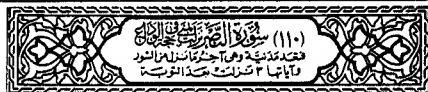 (١١٠) سُورَةُ النَّصْرِ نَزَلَتْ بِمِنًى فِي حَجَّةِ الوَدَاعِ
فَتُعَدُّ مَدَنِيَّة وَهِيَ آخِرُ مَا نَزَلَ مِنَ السُّوَر
وَآيَاتُهَا ٣ نَزَلَتْ بَعْدَ التَّوْبَة